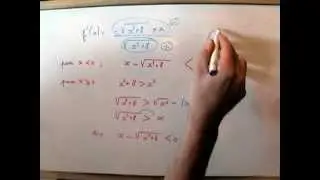 f'(x) = (-√(x²+8) + x) / √(x²+8)
pour x<0 : x - √(x²+8) <
pour x≥0 : x²+8 > x²
√(x²+8) > √x²
√(x²+8) > x
x - √(x²+8) < 0